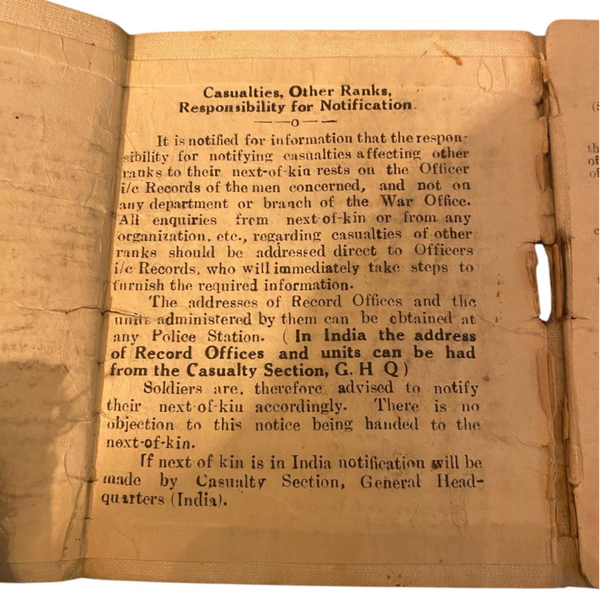 Casualties, Other Ranks,
Responsibility for Notification.
——o——
It is notified for information that the respon-
sibility for notifying casualties affecting other
ranks to their next-of-kin rests on the Officer
i/c Records of the men concerned, and not on
any department or branch of the War Office.
All enquiries from next-of-kin or from any
organization, etc., regarding casualties of other
ranks should be addressed direct to Officers
i/c Records, who will immediately take steps to
furnish the required information.
The addresses of Record Offices and the
units administered by them can be obtained at
any Police Station. (In India the address
of Record Offices and units can be had
from the Casualty Section, G. H Q)
Soldiers are, therefore advised to notify
their next-of-kin accordingly. There is no
objection to this notice being handed to the
next-of-kin.
If next of kin is in India notification will be
made by Casualty Section, General Head-
quarters (India).